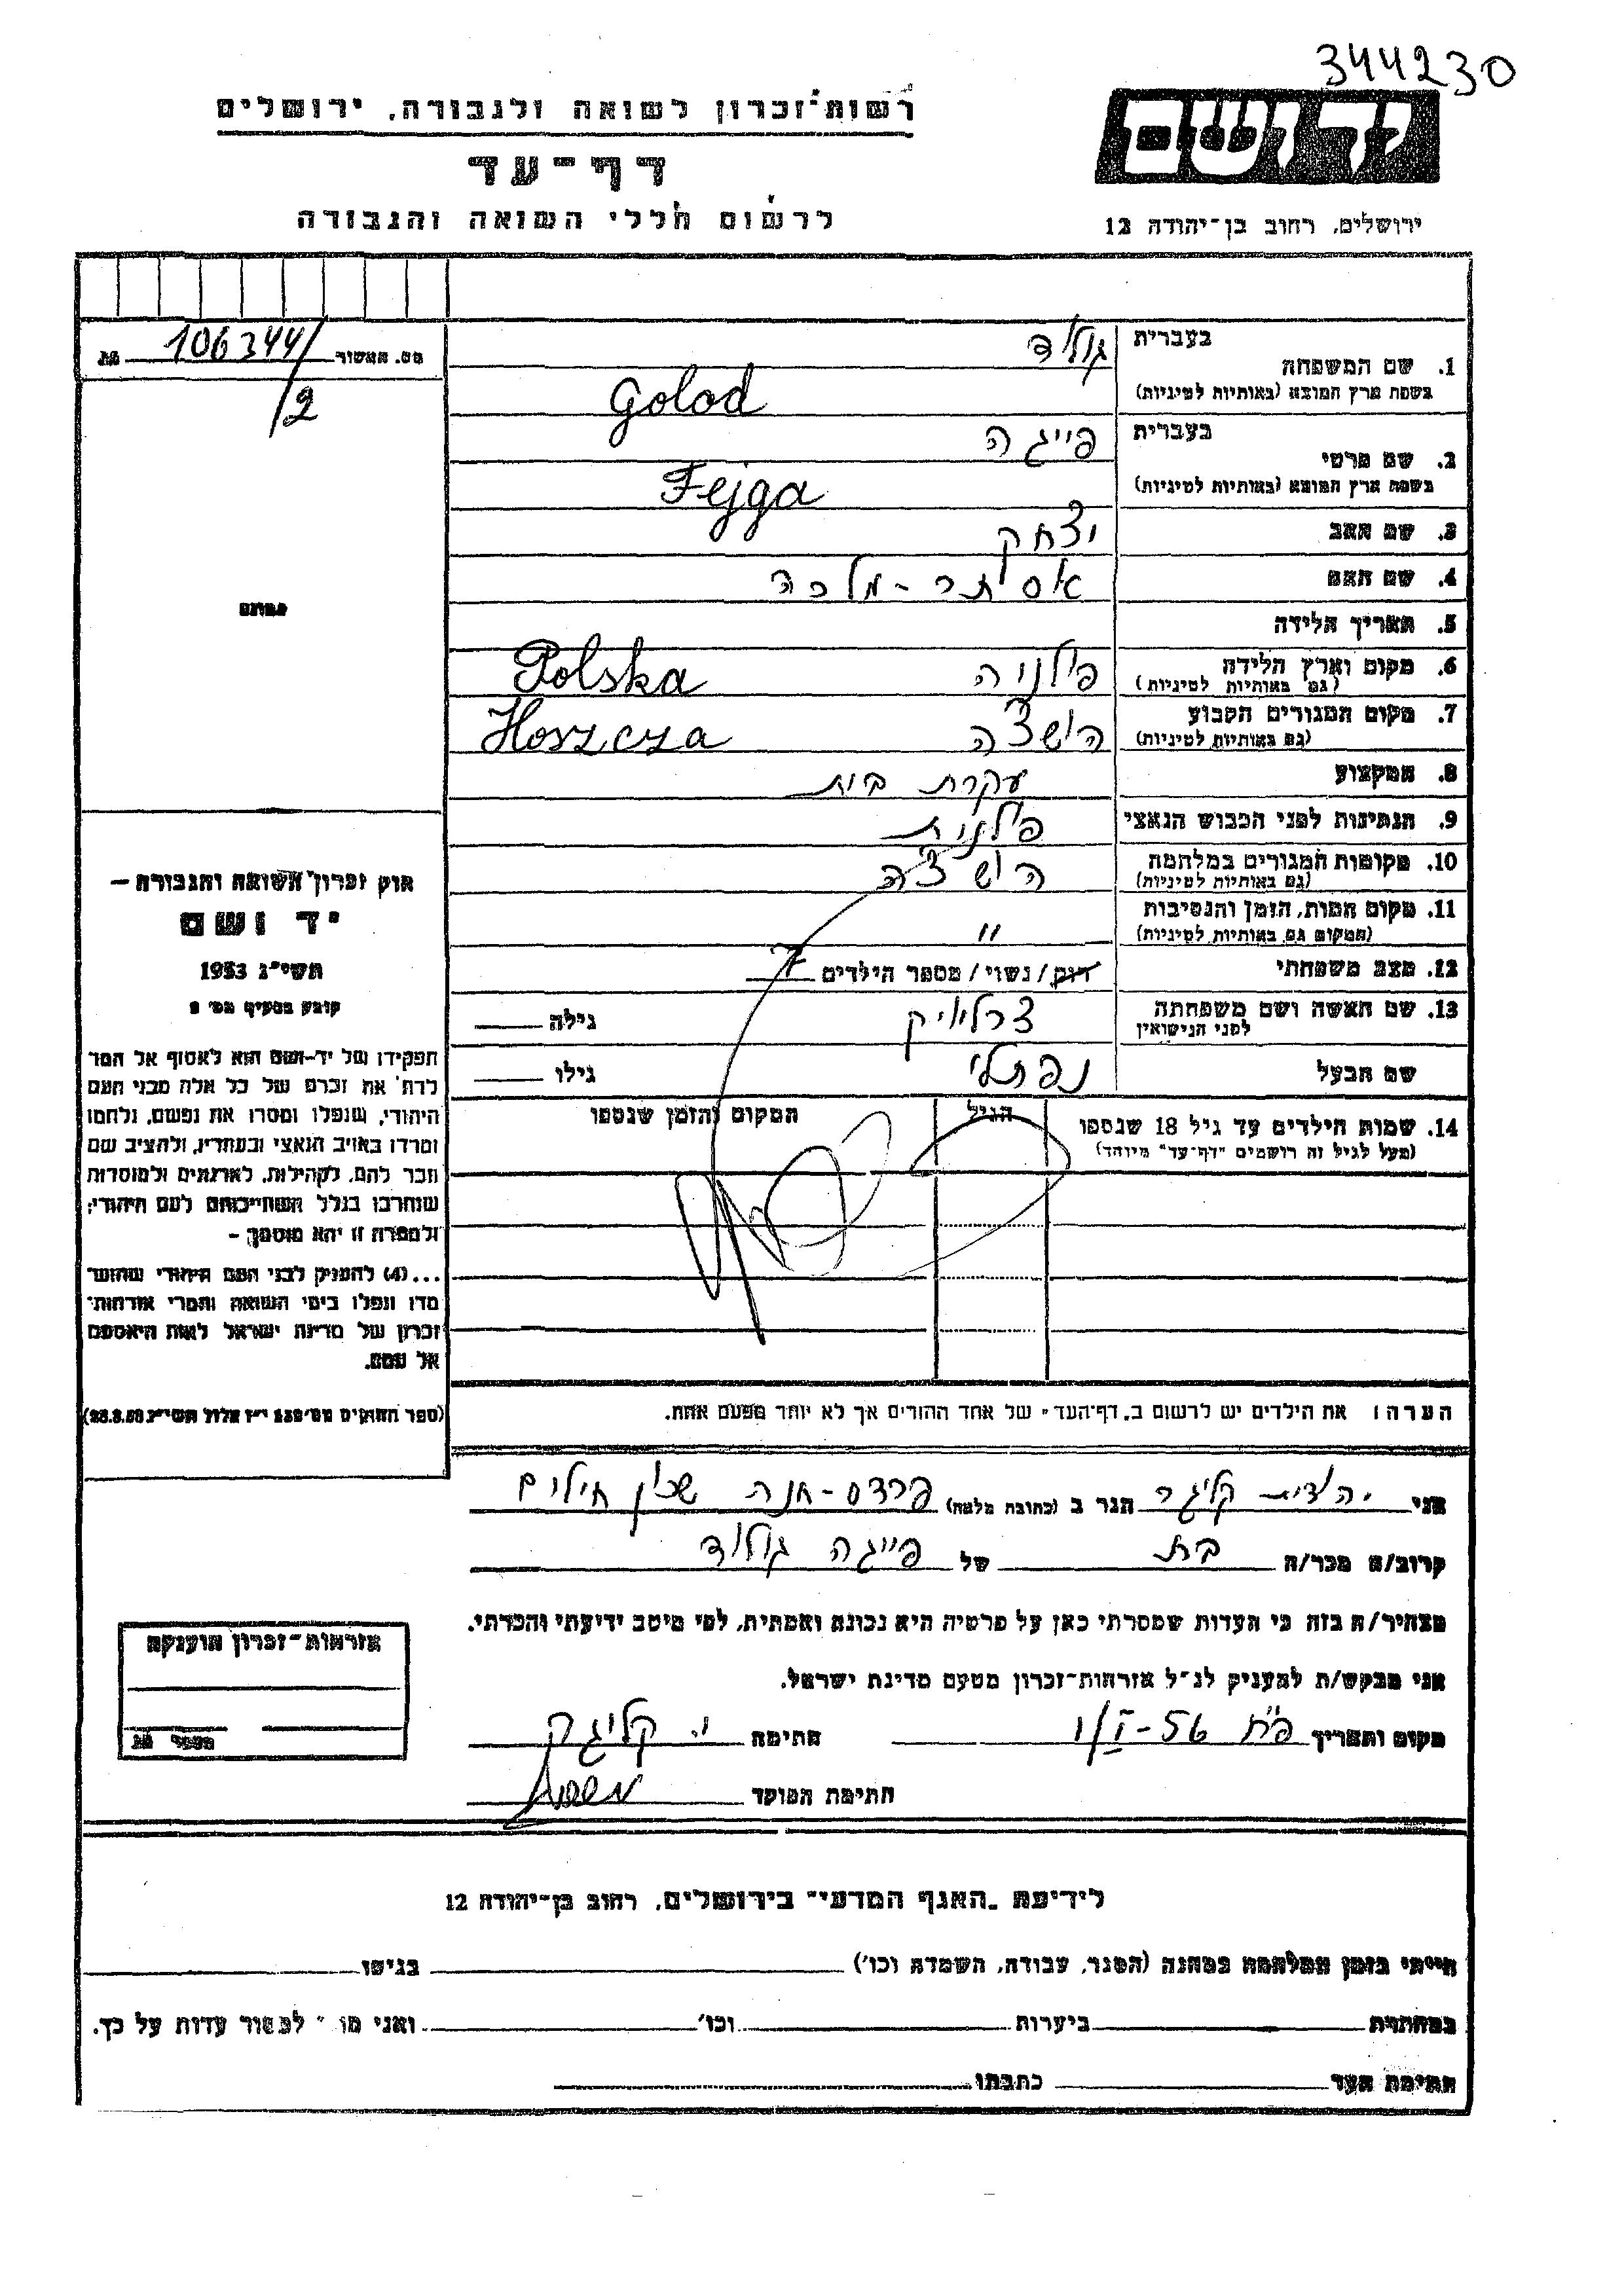 344230
יד ושם
רשות־זכרון לשואה ולגבורה, ירושלים
דף־עד
לרשום חללי השואה והגבורה
ירושלים, רחוב בן־יהודה 12
מס. האשור 106344/
/2
בעברית גולוד
1. שם המשפחה
בשפת ארץ המוצא (באותיות לטיניות) Golod
בעברית פייגה
2. שם פרטי
בשפת ארץ המוצא (באותיות לטיניות) Fejga
3. שם האב יצחק
4. שם האם אסתר - מלכה
5. תאריך הלידה
6. מקום וארץ הלידה פולניה Polska
(גם באותיות לטיניות)
7. מקום המגורים הקבוע הושצ'ה Hoszcza
(גם באותיות לטיניות)
8. המקצוע עקרת בית
9. הנתינות לפני הכבוש הנאצי פולנית
10. מקומות המגורים במלחמה הושצ'ה
(גם באותיות לטיניות)
11. מקום המות, הזמן והנסיבות "
(המקום גם באותיות לטיניות)
12. מצב משפחתי רווק / נשוי / מספר הילדים 7
13. שם האשה ושם משפחתה גילה
לפני הנישואין
שם הבעל נפתלי גילו
14. שמות הילדים עד גיל 18 שנספו הגיל המקום והזמן שנספו
(מעל לגיל זה רושמים "דף־עד" מיוחד)
הערה: את הילדים יש לרשום ב"דף־העד" של אחד ההורים אך לא יותר מפעם אחת.
חותם
חוק זכרון השואה והגבורה —
יד ושם
תשי"ג 1953
קובע בסעיף מס' 2
תפקידו של יד־ושם הוא לאסוף אל המו־
לדת את זכרם של כל אלה מבני העם
היהודי, שנפלו ומסרו את נפשם, נלחמו
ומרדו באויב הנאצי ובעוזריו, ולהציב שם
וזכר להם, לקהילות, לארגונים ולמוסדות
שנחרבו בגלל השתייכותם לעם היהודי;
ולמטרה זו יהא מוסמך —
...(4) להעניק לבני העם היהודי שהוש־
מדו ונפלו בימי השואה והמרי אזרחות־
זכרון של מדינת ישראל לאות היאספם
אל עמם.
(ספר החוקים מס' 132 י"ז אלול תשי"ג 28.8.53)
אני יהודית קליגר הגר ב (כתובת מלאה) פרדס - חנה שכון חילים
קרוב/ה מכר/ה בת של פייגה גולוד
מצהיר/ה בזה כי העדות שמסרתי כאן על פרטיה היא נכונה ואמתית, לפי מיטב ידיעתי והכרתי.
אני מבקש/ת להעניק לנ"ל אזרחות־זכרון מטעם מדינת ישראל.
מקום ותאריך פ"ח 1/I-56 חתימה י. קליגר
חתימת הפוקד
אזרחות־זכרון הוענקה
לידיעת "האגף המדעי" בירושלים, רחוב בן־יהודה 12
הייתי בזמן המלחמה במחנה (הסגר, עבודה, השמדה וכו') בגיטו
במחתרת ביערות וכו' ואני מו למסור עדות על כך.
חתימת העד כתבתו